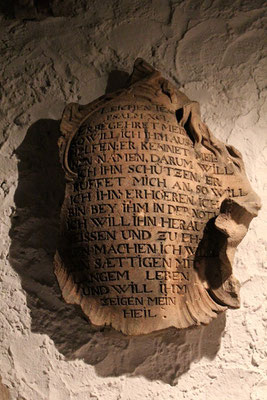 PSALM XCI
BEGEHRET MEIN
SO WILL ICH IHM AUS
ELFEN: ER KENNET MEI
EN NAMEN, DARUM WILL
CH IHN SCHÜTZEN. ER
RUFFET MICH AN, SO WILL
ICH IHN ERHOEREN. ICH
BIN BEY IHM IN DER NOTT
ICH WILL IHN HERAU
REISSEN UND ZU EH
EN MACHEN. ICH WILL
IHN SÆTTIGEN MIT
LANGEM LEBEN
UND WILL IHM
ZEIGEN MEIN
HEIL.